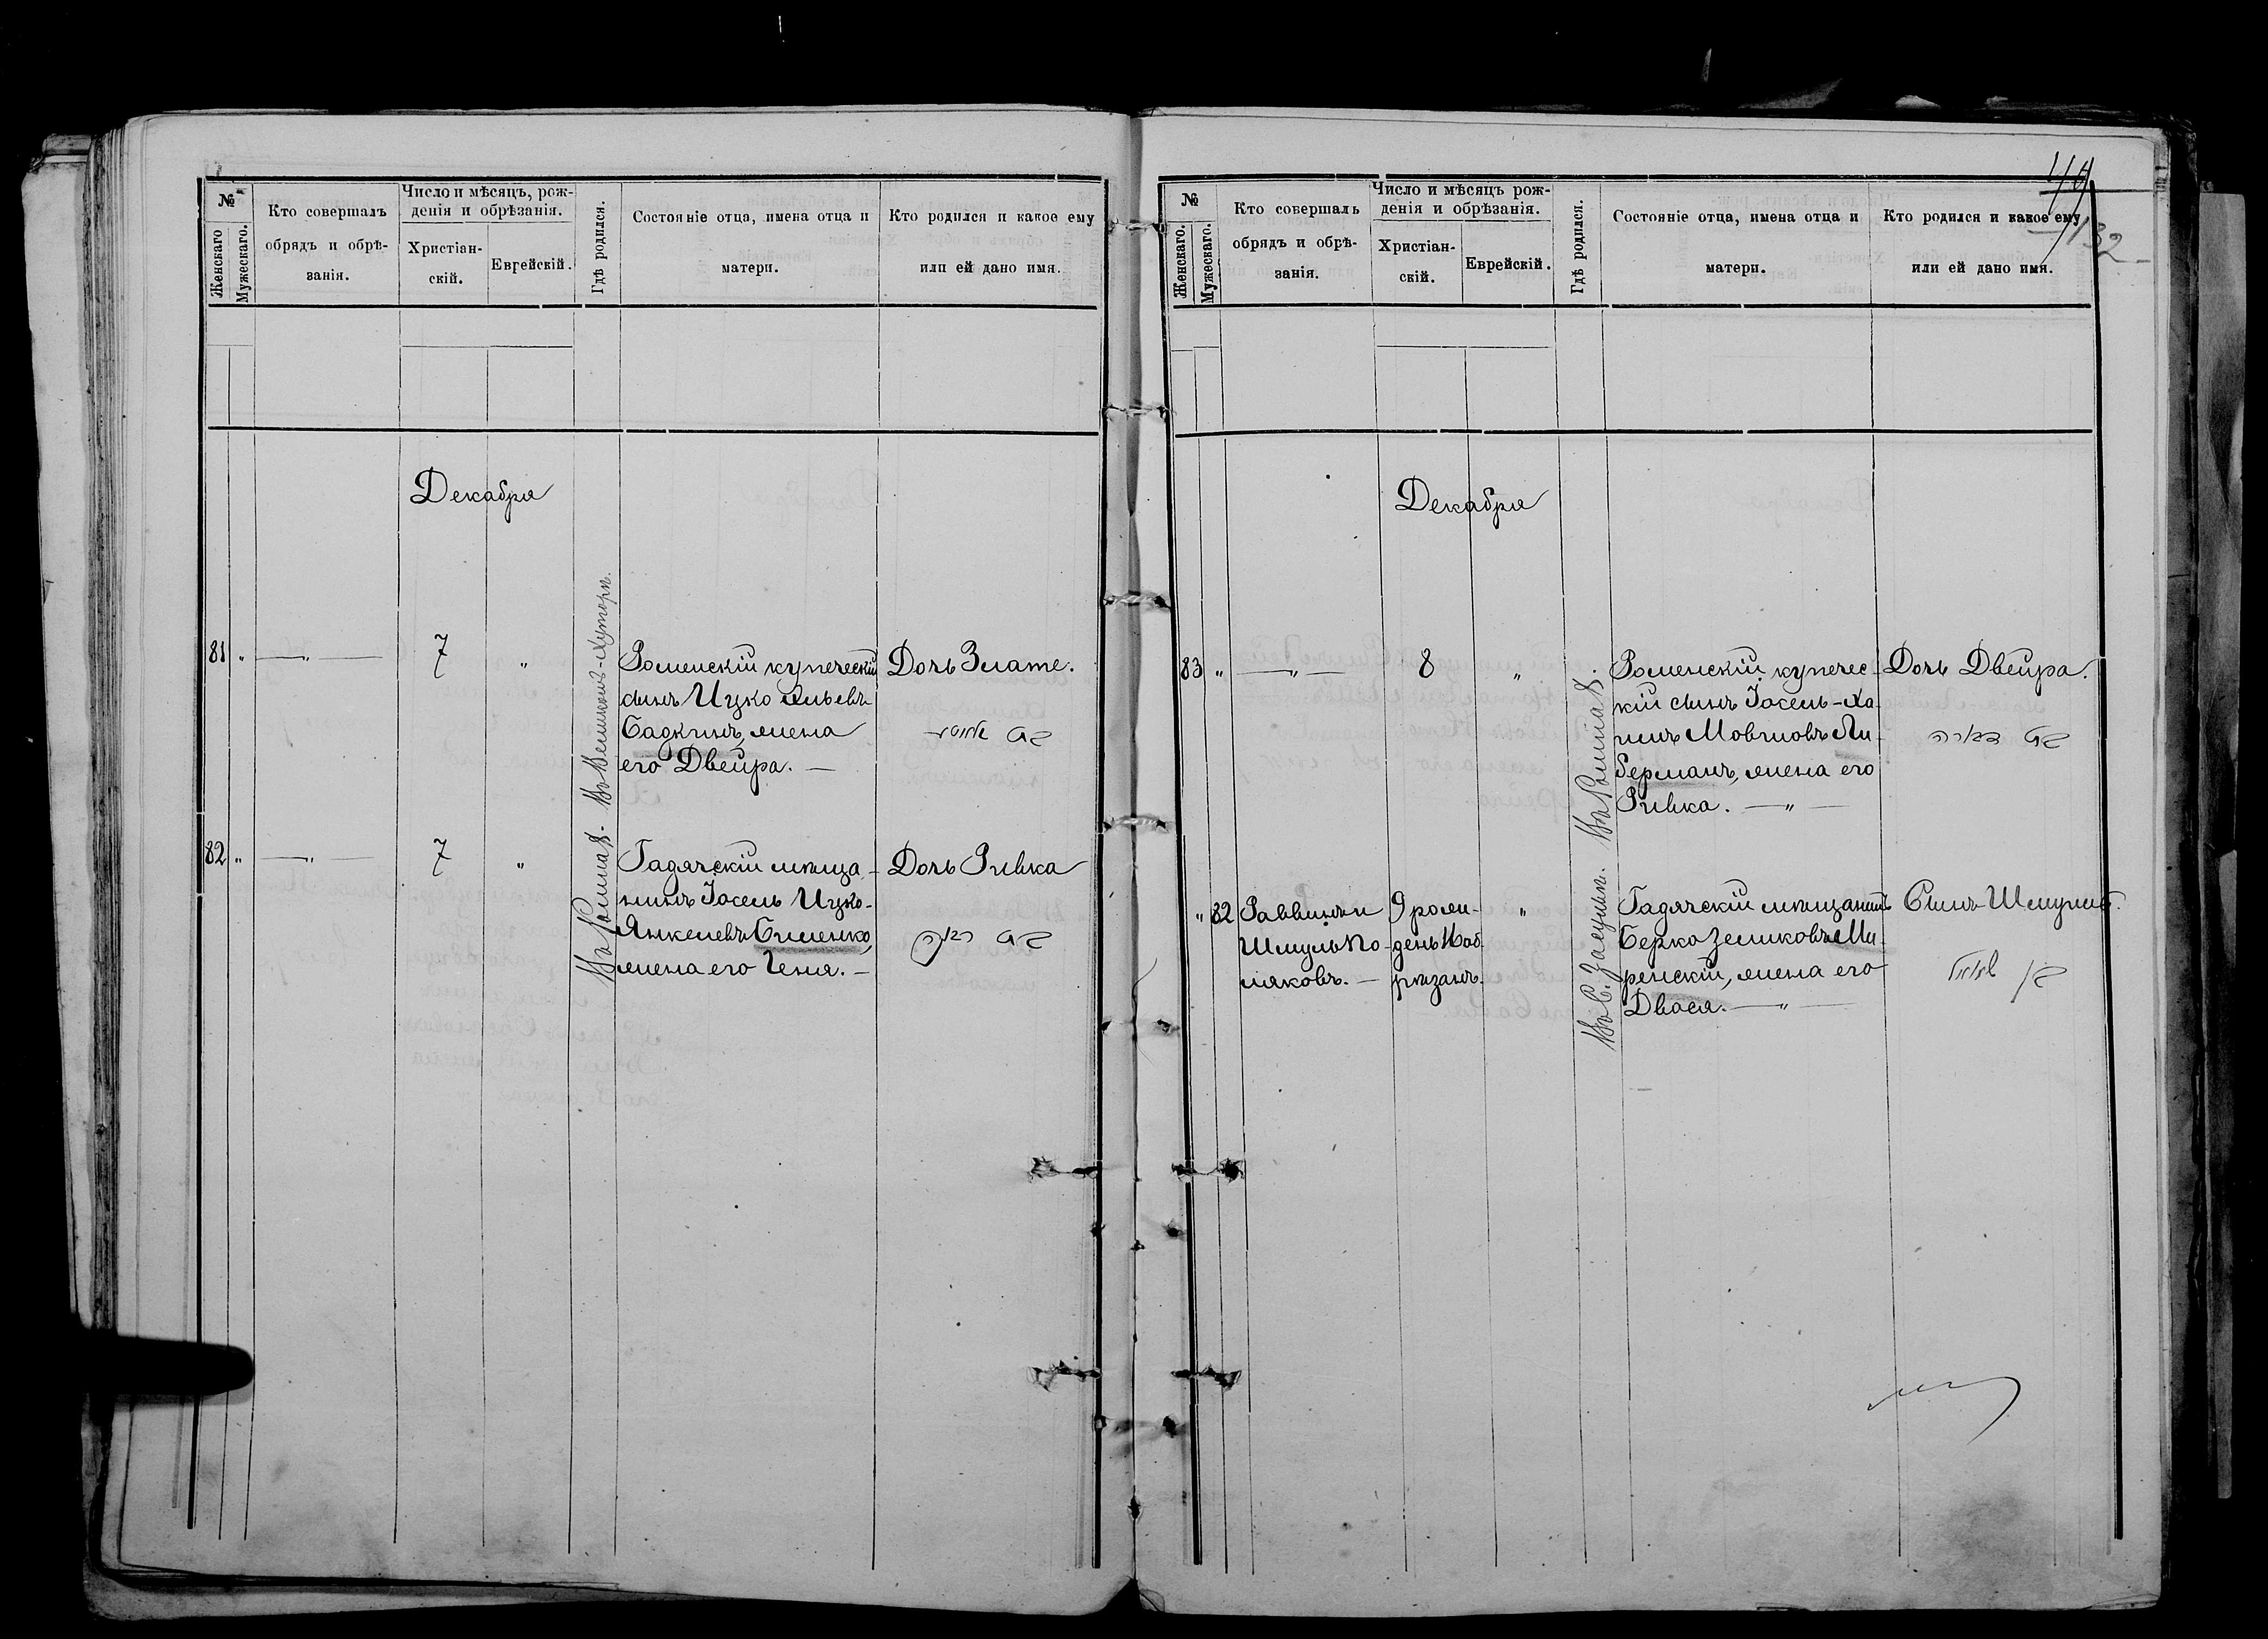 №
Женскаго
Мужескаго.
Кто совершалъ
обрядъ и обрѣ-
занія.
Число и мѣсяцъ, рож-
денія и обрѣзанія.
Христіан-
скій.
Еврейскій.
Гдѣ родился.
Состояніе отца, имена отца и
матери.
Кто родился и какое ему
или ей дано имя.
Декабря
81 " —"— 7 "
Въ Великомъ-Хуторѣ.
Роменскій купеческій
сынъ Ицко
Бадкинъ, жена
его Двейра. —
Дочь Злате.
82 " —"— 7 "
Въ Ромнахъ.
Гадячскій мѣща-
нинъ Іосель Ицко-
Янкелевъ Клименко,
жена его Геня. —
Дочь Ривка
רבקה
49
132
№
Женскаго.
Мужескаго.
Кто совершалъ
обрядъ и обрѣ-
занія.
Число и мѣсяцъ рож-
денія и обрѣзанія.
Христіан-
скій.
Еврейскій.
Гдѣ родился.
Состояніе отца, имена отца и
матери.
Кто родился и какое ему
или ей дано имя.
Декабря
83 " —"— 8 "
Въ Ромнахъ.
Роменскій купечес-
кій сынъ Іосель-Ха-
имъ Мовшовъ Ли-
берманъ, жена его
Ривка. —"—
Дочь Двейра.
" 82
Раввинъ и
Шмуль По-
ляковъ. —
9 рожд-
день
рѣзанъ.
"
Гадячскій мѣщанинъ
Берко Зеликовъ Ми-
ренскій, жена его
Двося. —"—
Сынъ Шмуиль.